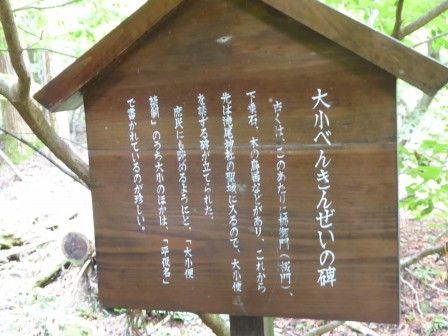 大小べんきんぜいの碑
古くは、このあたりに仮御門(浜門)、
下乗石、木の鳥居などがあり、これから
先は滝尾神社の聖域に入るので、大小便
を禁ずる碑が立てられた。
庶民にも読めるようにと、「大小便
禁制」のうち大小のほかは、「平仮名」
で書かれているのが珍しい。